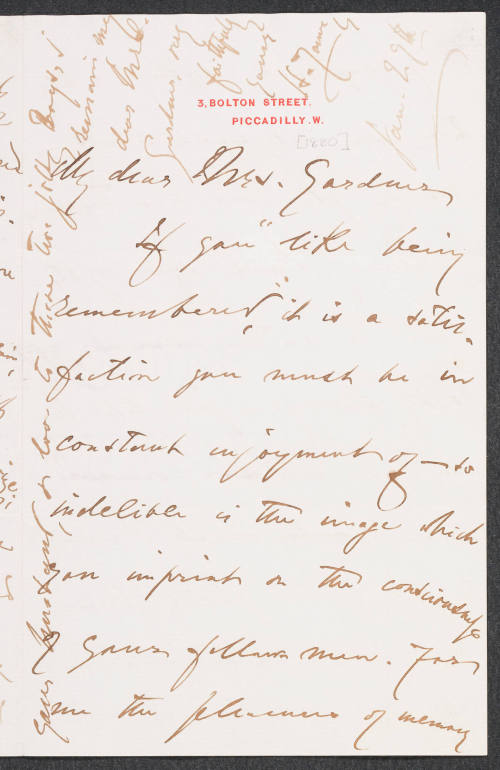 3, BOLTON STREET,
PICCADILLY. W.
[1880]
Jan. 29th
My dear Mrs. Gardner
If you "like being
remembered", it is a satis-
faction you must be in
constant enjoyment of — so
indelible is the image which
you imprint on the consciousness
of your fellow man. For
me the pleasures of memory
your husband, & love to those two jolly boys, I
remain my
dear Mrs.
Gardner, very
faithfully
yours
H. James